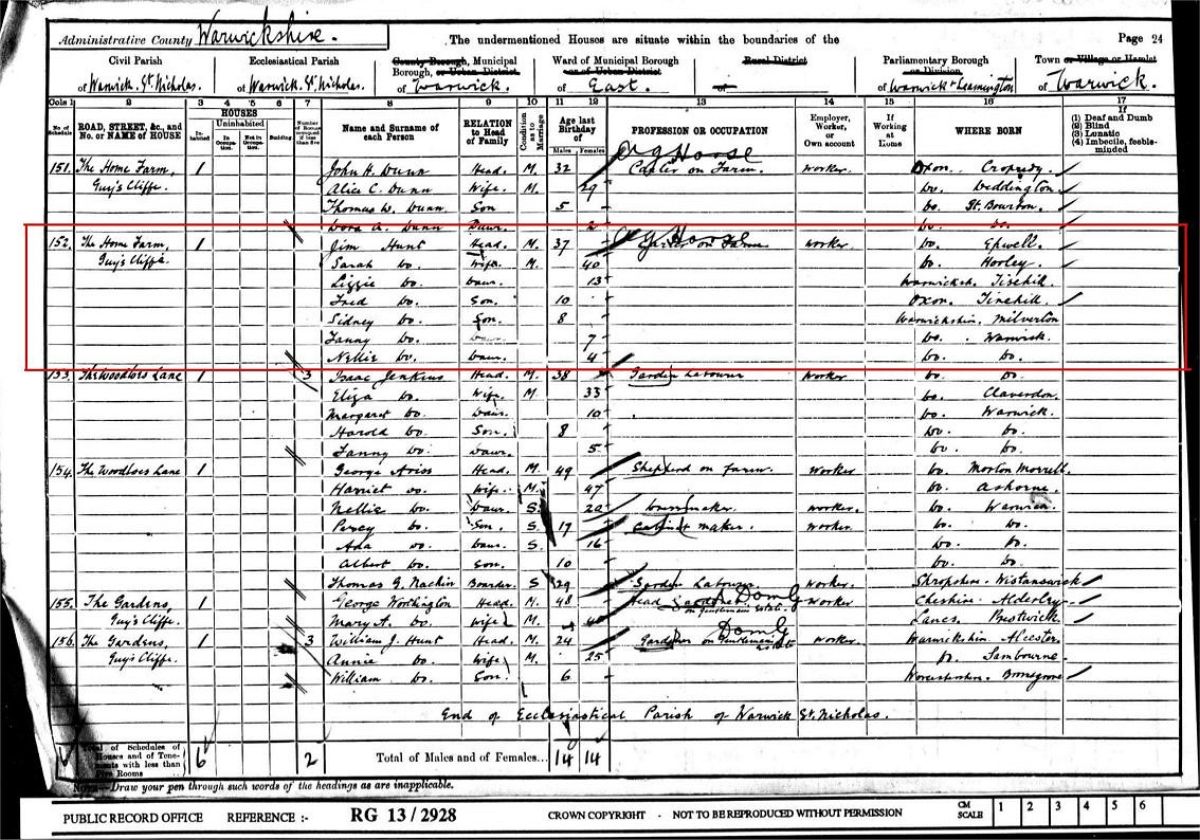 Administrative County Warwickshire. The undermentioned Houses are situate within the boundaries of the Page 24
Civil Parish Ecclesiastical Parish County Borough, Municipal Borough, or Urban District Ward of Municipal Borough or of Urban District Rural District Parliamentary Borough or Division Town or Village or Hamlet
of Warwick. St. Nicholas. of Warwick. St. Nicholas. of Warwick. of East. of of Warwick & Leamington of Warwick.
Cols 1 2 3 4 5 6 7 8 9 10 11 12 13 14 15 16 17
No. of Schedule ROAD, STREET, &c., and No. or NAME of HOUSE HOUSES Inhabited Uninhabited In Occupation. Not in Occupation. Building Number of Rooms occupied if less than five Name and Surname of each Person RELATION to Head of Family Condition as to Marriage Age last Birthday of Males Females PROFESSION OR OCCUPATION Employer, Worker, or Own account If Working at Home WHERE BORN If (1) Deaf and Dumb (2) Blind (3) Lunatic (4) Imbecile, feeble-minded
151. The Home Farm, 1 John H. Dunn Head. M. 32 Carter on Farm. Worker. Oxon. Cropredy.
Guy's Cliffe. Alice C. Dunn Wife. M. 29 Do.
Thomas W. Dunn. Son 5 Do. Bourton.
Dora A. Dunn Daur. 2 Do. Do.
152. The Home Farm, 1 Jim Hunt Head. M. 37 on Farm Worker Do. Epwell.
Guy's Cliffe. Sarah Do. Wife. M. 40 Do. Horley.
Lizzie Do. Daur. 13
Fred Do. Son. 10 Oxon.
Sidney Do. Son. 8 Warwickshire. Milverton
Fanny Do. Daur. 7 Do. Warwick.
Nellie Do. Daur. 4 Do. Do.
153. The Woodloes Lane 1 3 Isaac Jenkins Head. M. 38 Garden Labourer Worker Do. Do.
Eliza Do. Wife. M. 33 Do. Claverdon.
Margaret Do. Daur. 10 Do. Warwick.
Harold Do. Son. 8 Do. Do.
Fanny Do. Daur. 5 Do. Do.
154. The Woodloes Lane 1 George Head. M. 49 Shepherd on Farm. Worker Do. Morton Morrell.
Harriet Do. Wife. M. 47 Do. Ashorne.
Nellie Do. Daur. S. 20 Dressmaker Worker. Do. Warwick.
Percy Do. Son. S. 17 Cabinet maker. Worker. Do. Do.
Ada Do. Daur. S. 16 Do. Do.
Albert Do. Son. 10 Do. Do.
Thomas G. Boarder S 29 Garden Labourer. Worker. Shropshire. Wistanswick
155. The Gardens, 1 George Worthington Head. M. 48 Head Gardener on Gentlemans Estate Worker Cheshire. Alderley.
Guy's Cliffe. Mary A. Do. Wife M. Lancs. Prestwich.
156. The Gardens, 1 3 William J. Hunt Head. M. 24 Gardener on Gentlemans Estate Worker. Warwickshire Alcester.
Guy's Cliffe. Annie Do. Wife M. 25 Do. Sambourne.
William Do. Son. 6 Worcestershire. Bromsgrove
End of Ecclesiastical Parish of Warwick St. Nicholas.
Total of Schedules of Houses and of Tenements with less than Five Rooms 6 2 Total of Males and of Females... 14 14
Note—Draw your pen through such words of the headings as are inapplicable.
PUBLIC RECORD OFFICE REFERENCE :- RG 13 / 2928 CROWN COPYRIGHT - NOT TO BE REPRODUCED WITHOUT PERMISSION CM SCALE 1 2 3 4 5 6